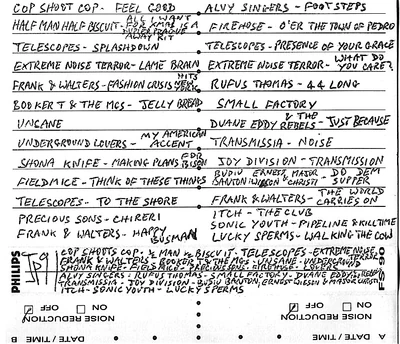 COP SHOOT COP - FEEL GOOD
HALF MAN HALF BISCUIT - ALL I WANT FOR XMAS IS A DUKLA PRAGUE AWAY KIT
TELESCOPES - SPLASHDOWN
EXTREME NOISE TERROR - LAME BRAIN
FRANK & WALTERS - FASHION CRISIS HITS NEW YORK
BOOKER T & THE MGS - JELLY BREAD
UNSANE
UNDERGROUND LOVERS - MY AMERICAN ACCENT
SHONA KNIFE - MAKING PLANS FOR BISON
FIELDMICE - THINK OF THESE THINGS
TELESCOPES - TO THE SHORE
PRECIOUS SONS - CHIRERI
FRANK & WALTERS - HAPPY BUSMAN
ALVY SINGERS - FOOTSTEPS
FIREHOSE - O'ER THE TOWN OF PEDRO
TELESCOPES - PRESENCE OF YOUR GRACE
EXTREME NOISE TERROR - WHAT DO YOU CARE?
RUFUS THOMAS - 44 LONG
SMALL FACTORY
DUANE EDDY & THE REBELS - JUST BECAUSE
TRANSMISSIA - NOISE
JOY DIVISION - TRANSMISSION
BUDIU BANTON, ERNEST WILSON & MAJOR CHRISTI - DO DEM SUPPER
FRANK & WALTERS - THE WORLD CARRIES ON
ITCH - THE CLUB
SONIC YOUTH - PIPELINE & KILLTIME
LUCKY SPERMS - WALKING THE COW
PHILIPS
JP9
COP SHOOTS COP. ½ MAN ½ BISCUIT. TELESCOPES - EXTREME NOISE TERROR
FRANK & WALTERS - BOOKER T & THE MGS - UNSANE - UNDERGROUND
SHONA KNIFE - FIELDMICE - PRECIOUS SONS - FIREHOSE - LOVERS
ALVY SINGERS - RUFUS THOMAS - SMALL FACTORY - DUANE EDDY & REBELS
TRANSMISSIA - JOY DIVISION - BUDIU BANTON, ERNEST WILSON & MAJOR CHRISTI
ITCH - SONIC YOUTH - LUCKY SPERMS
NOISE REDUCTION
ON OFF
NOISE REDUCTION
ON OFF
A DATE / TIME
B DATE / TIME